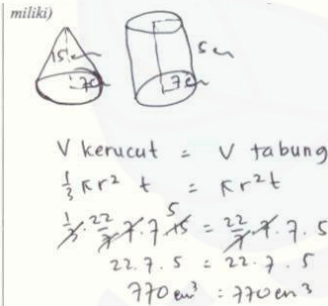 miliki)
15 cm
7 cm
5 cm
7 cm
V kerucut = V tabung
1/3 πr² t = πr² t
1/3 · 22/7 · 7 · 7 15 5 = 22/7 · 7 · 7 · 5
22 · 7 · 5 = 22 · 7 · 5
770 cm³ = 770 cm³